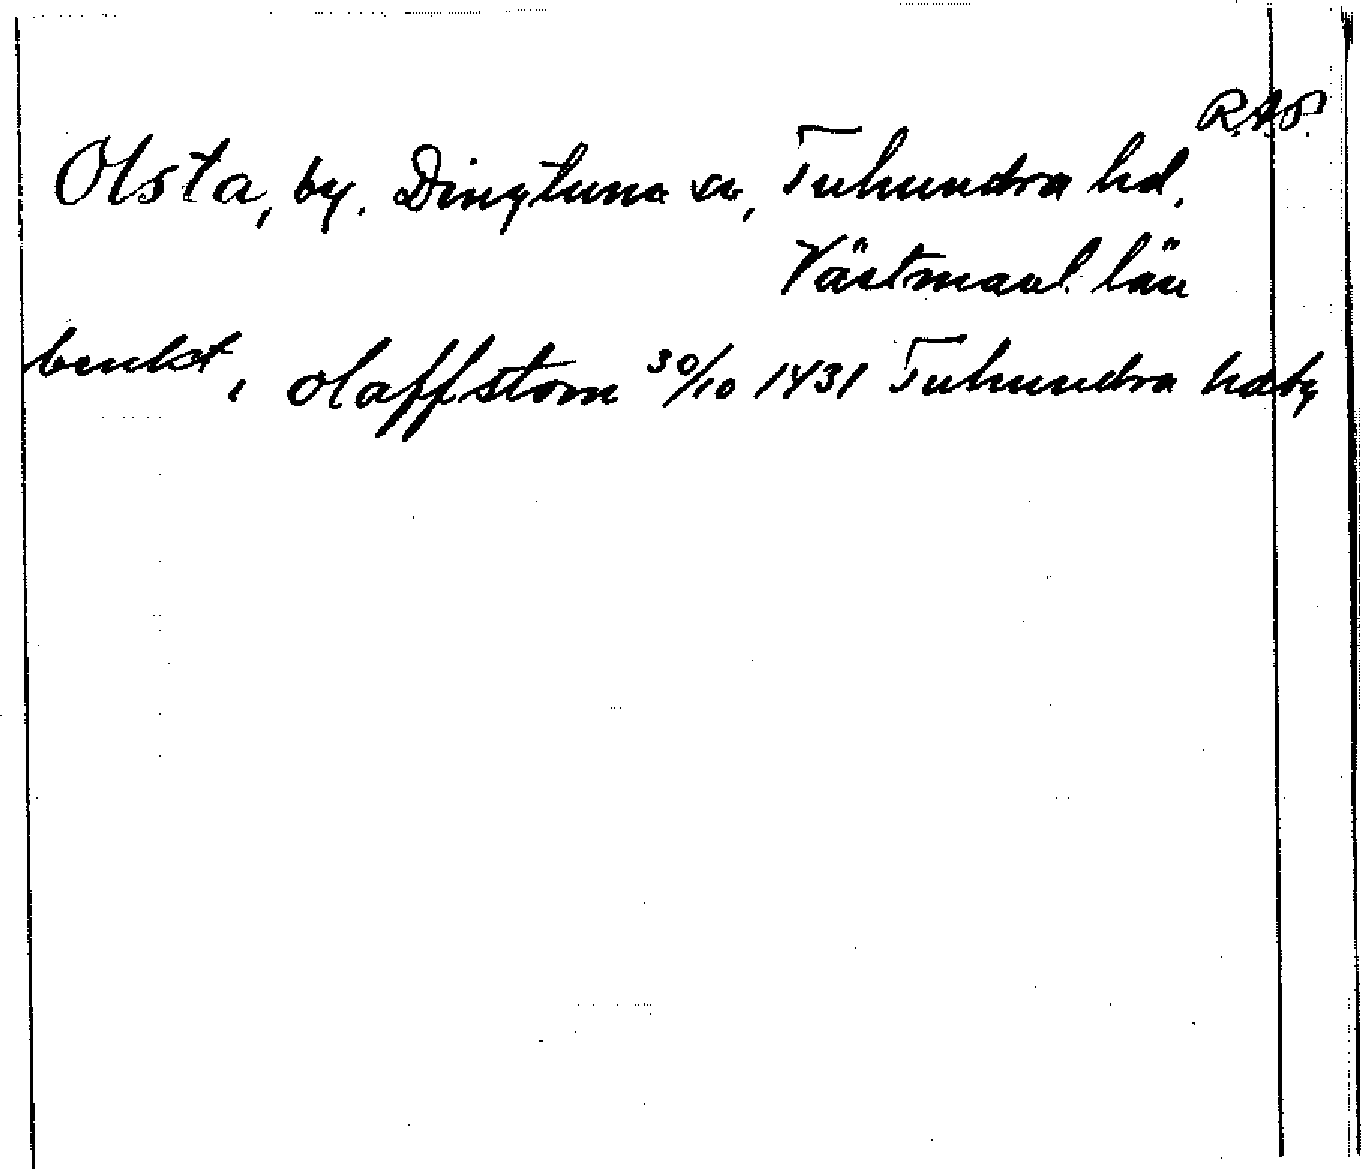 R.A.P.
Olsta, by. Dingtuna sn, Tuhundra hd.
Västmanl. län
benkt, i olaffstom 30/10 1431 Tuhundra hdbg